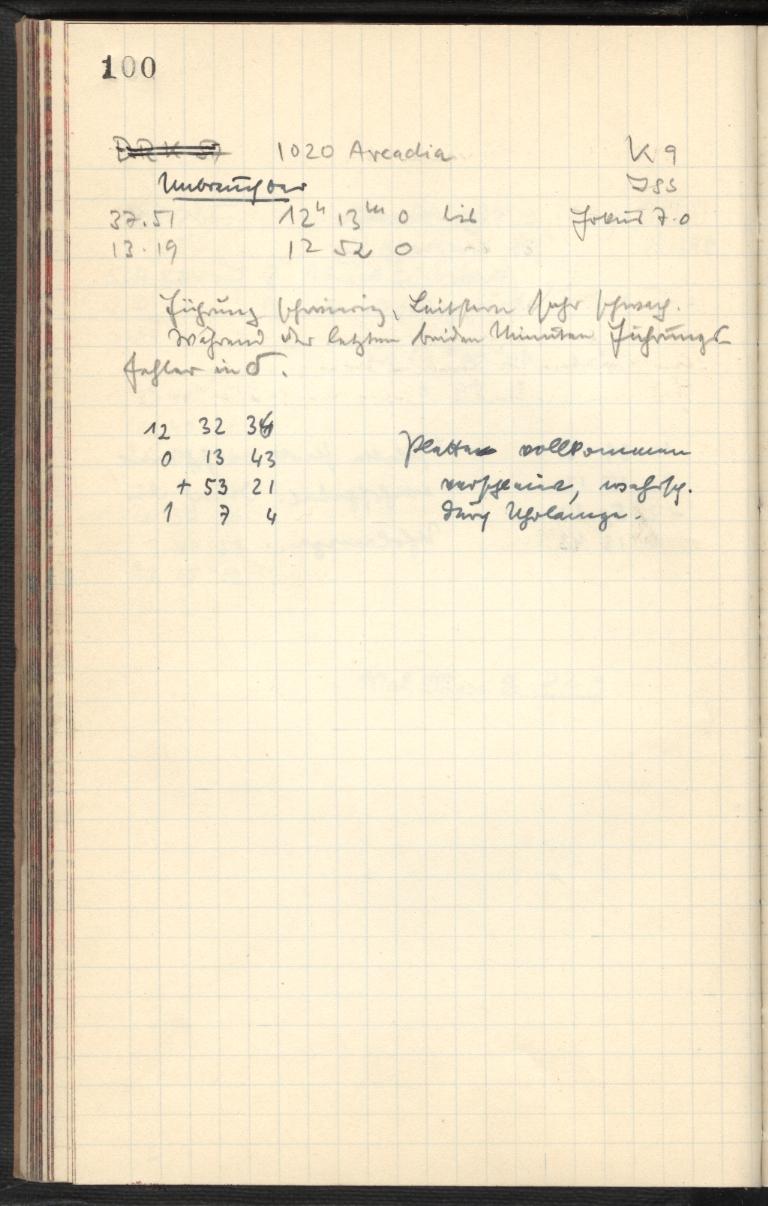 100
1020 Arcadia K 9
Unbrauchbar Jss
37.51 12h 13m 0 bis Fokus 7.0
13.19 12 52 0
Führung schwierig, Leitstern sehr schwach.
Während der letzten beiden Minuten Führungs-
fehler in δ.
12 32 34
0 13 43 Platten vollkommen
+ 53 21 verschleiert, wahrsch.
1 7 4 durch Uhrlampe.